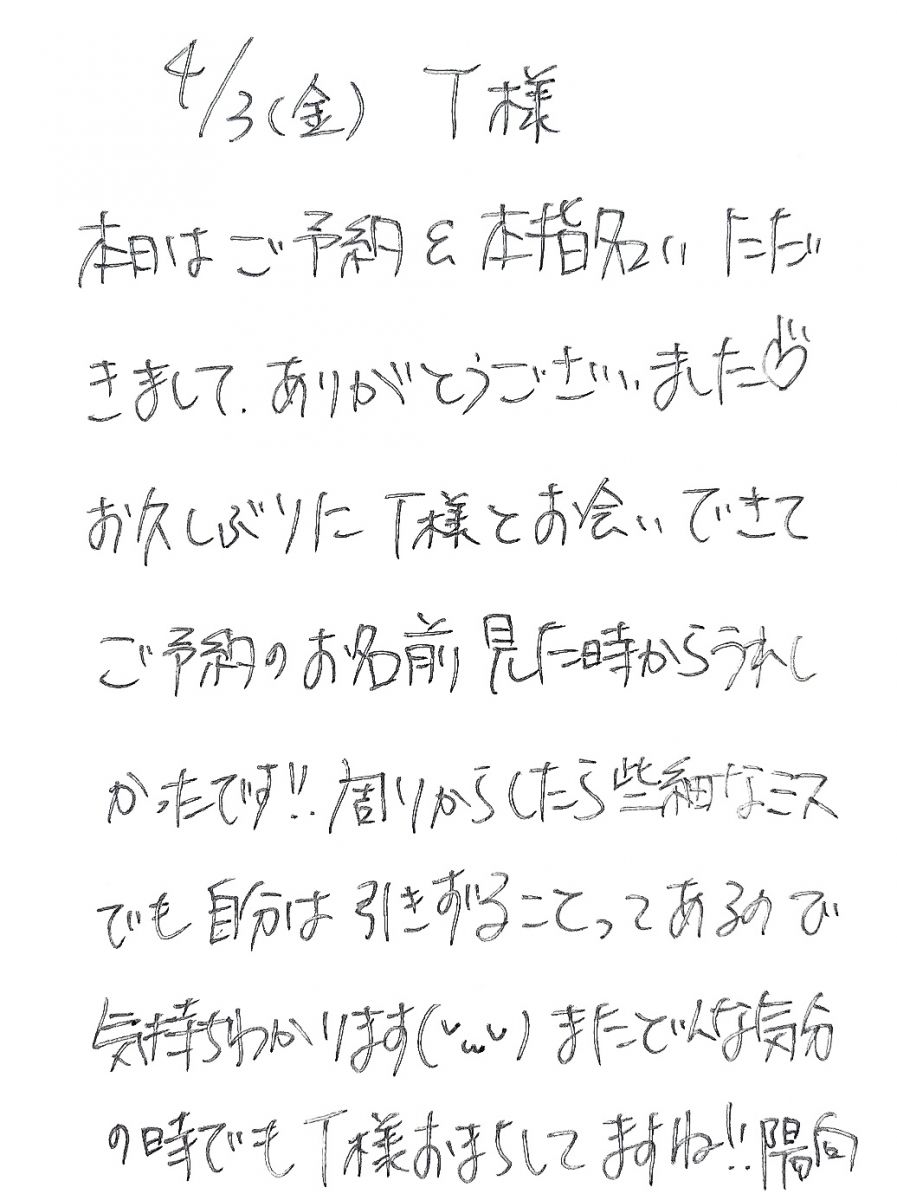 4/3(金) T様
本日はご予約&本指名いただ
きまして、ありがとうございました♡
お久しぶりにT様とお会いできて
ご予約のお名前見た時からうれし
かったです!!周りからしたら些細なミス
でも自分は引きずることってあるので
気持ちわかります(˘ω˘)またどんな気分
の時でもT様おまちしてますね!!陽向